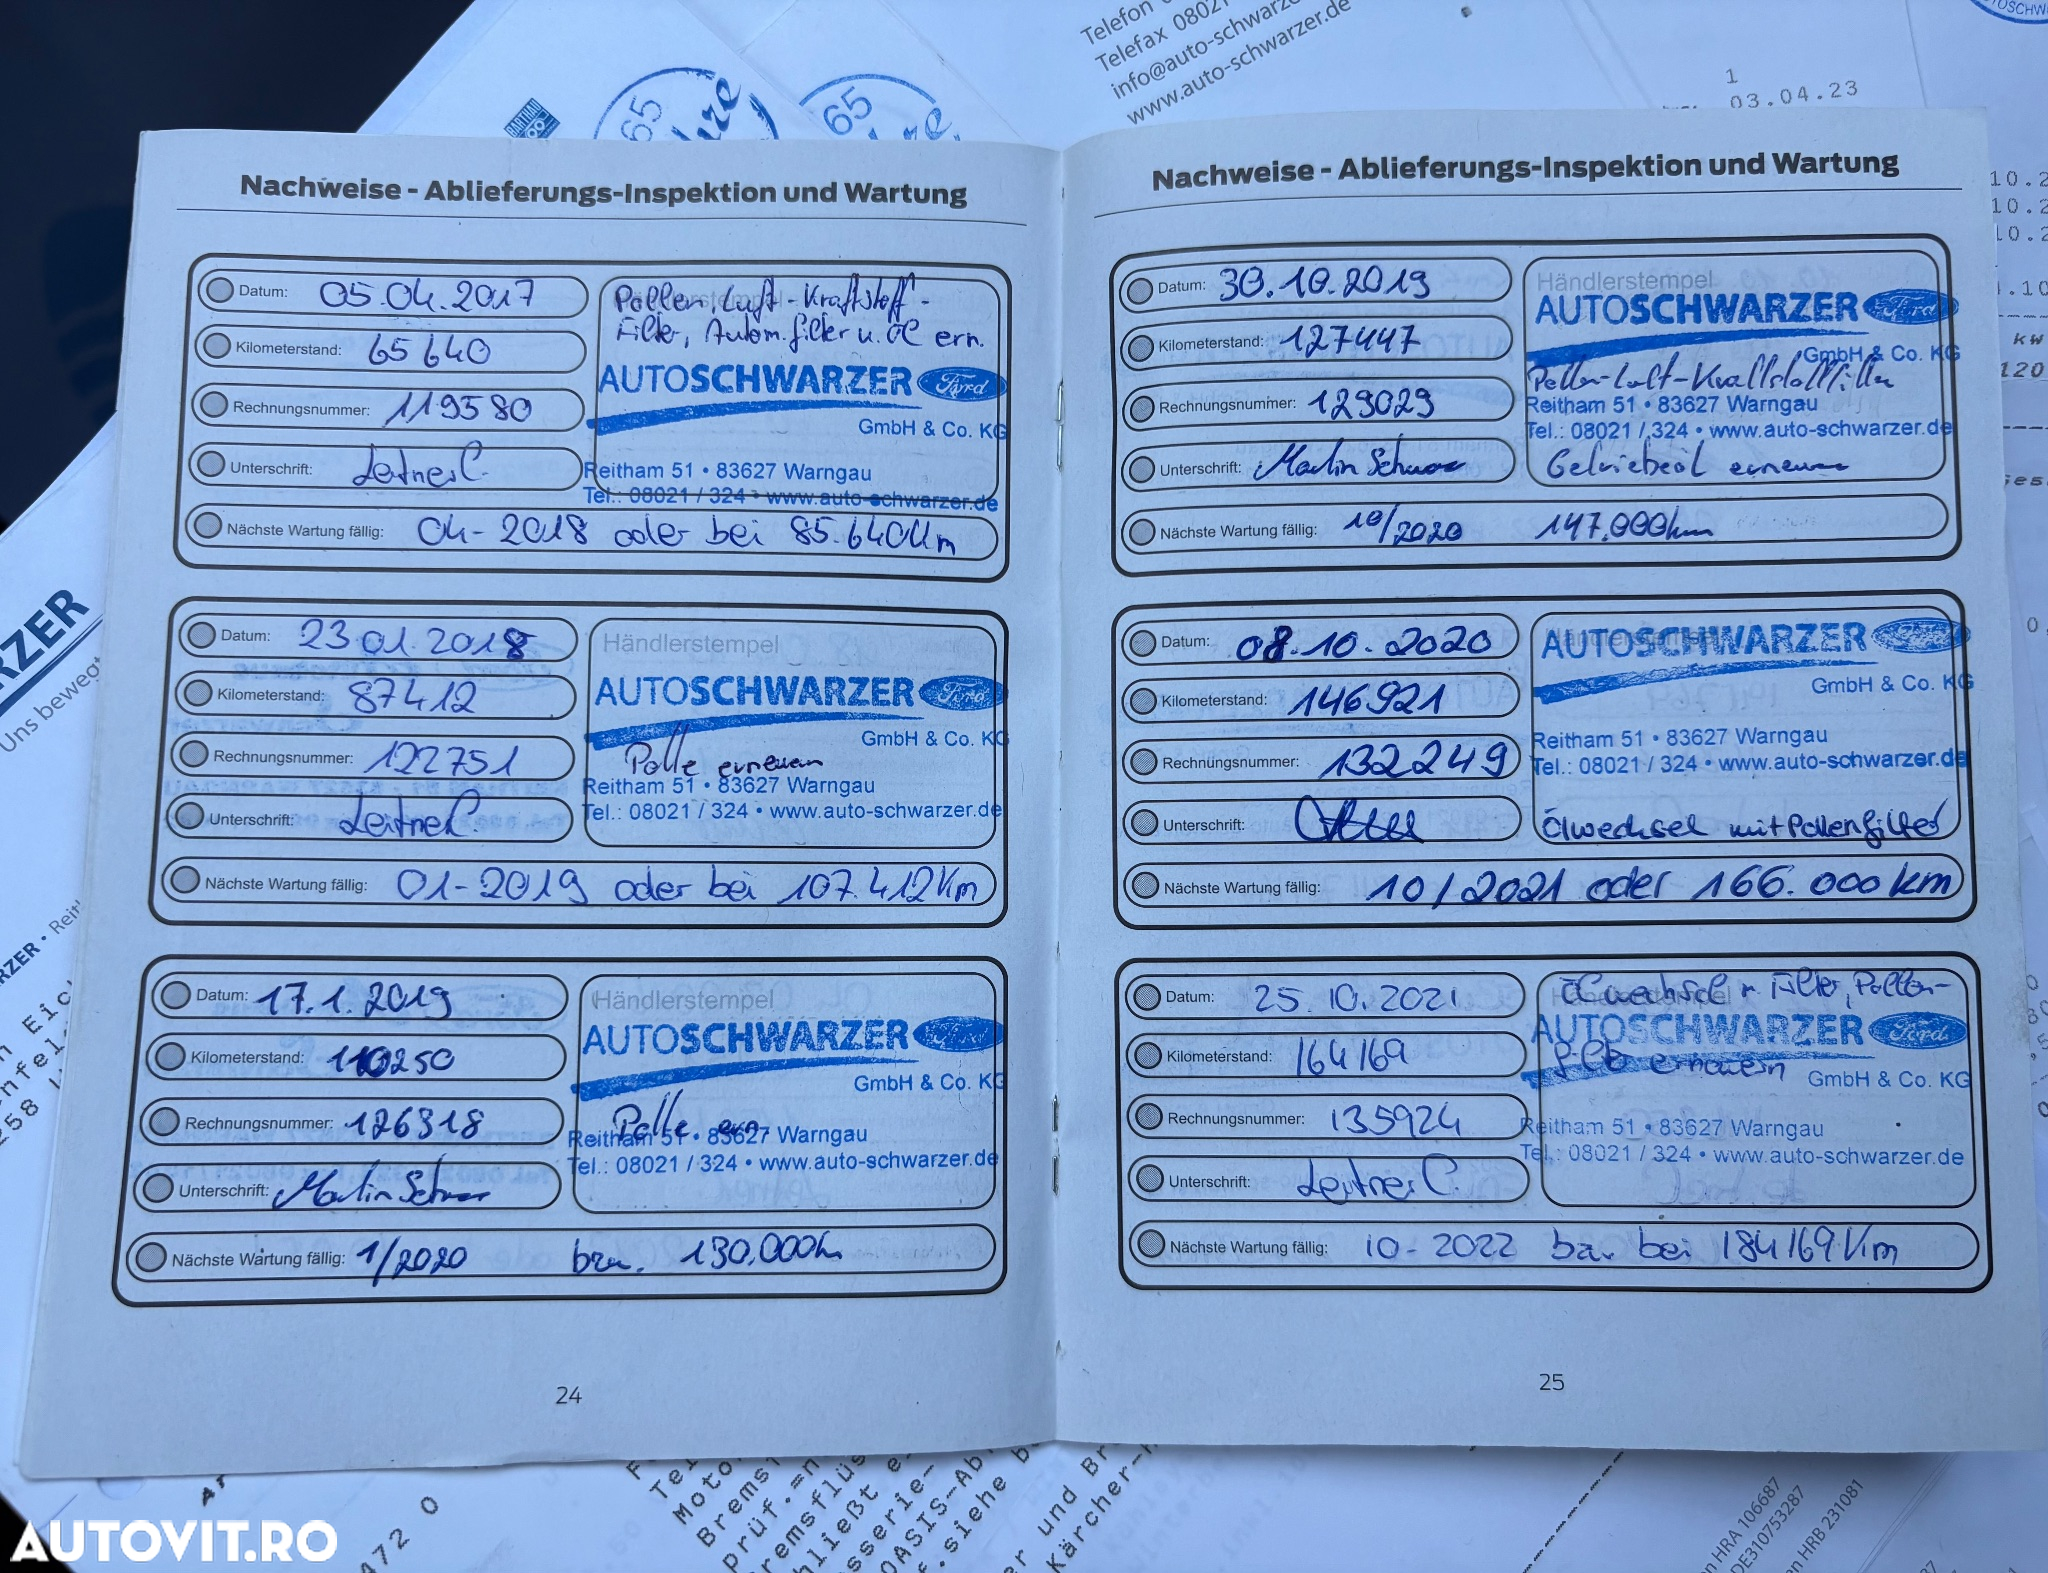 Telefax 08021
info@auto-schwarzer.de
www.auto-schwarzer.de
1
03.04.23
Nachweise - Ablieferungs-Inspektion und Wartung
Datum: 05.04.2017
Pollen, Luft-Kraftstoff-
Filter, Autom.filter u. Öl ern.
Kilometerstand: 65640
AUTOSCHWARZER Ford
Rechnungsnummer: 119580
GmbH & Co. KG
Unterschrift: Leitner C.
Reitham 51 • 83627 Warngau
Tel.: 08021 / 324 • www.auto-schwarzer.de
Nächste Wartung fällig: 04-2018 oder bei 85.640Km
Datum: 23.01.2018
Händlerstempel
Kilometerstand: 87412
AUTOSCHWARZER Ford
GmbH & Co. KG
Rechnungsnummer: 122751
Polle erneuern
Reitham 51 • 83627 Warngau
Unterschrift: Leitner C.
Tel.: 08021 / 324 • www.auto-schwarzer.de
Nächste Wartung fällig: 01-2019 oder bei 107.412Km
Datum: 17.1.2019
Händlerstempel
Kilometerstand: 110250
AUTOSCHWARZER Ford
GmbH & Co. KG
Rechnungsnummer: 126318
Polle ern.
Reitham 51 • 83627 Warngau
Unterschrift: Martin Schwarz
Tel.: 08021 / 324 • www.auto-schwarzer.de
Nächste Wartung fällig: 1/2020 bzw. 130.000km
24
Nachweise - Ablieferungs-Inspektion und Wartung
Datum: 30.10.2019
Händlerstempel
AUTOSCHWARZER Ford
Kilometerstand: 127447
GmbH & Co. KG
Pollen-Luft-Kraftstofffilter
Rechnungsnummer: 129029
Reitham 51 • 83627 Warngau
Tel.: 08021 / 324 • www.auto-schwarzer.de
Unterschrift: Martin Schwarz
Getriebeöl erneuern
Nächste Wartung fällig: 10/2020 147.000km
Datum: 08.10.2020
Händlerstempel
AUTOSCHWARZER Ford
Kilometerstand: 146921
GmbH & Co. KG
Rechnungsnummer: 132249
Reitham 51 • 83627 Warngau
Tel.: 08021 / 324 • www.auto-schwarzer.de
Unterschrift:
Ölwechsel mit Pollenfilter
Nächste Wartung fällig: 10/2021 oder 166.000km
Datum: 25.10.2021
Ölwechsel m Filter, Pollen-
Händlerstempel
AUTOSCHWARZER Ford
Kilometerstand: 164169
erneuern
GmbH & Co. KG
Rechnungsnummer: 135924
Reitham 51 • 83627 Warngau
Tel.: 08021 / 324 • www.auto-schwarzer.de
Unterschrift: Leitner C.
Nächste Wartung fällig: 10-2022 bzw. bei 184169Km
25
HRA 106687
DE310753287
HRB 231081
AUTOVIT.RO